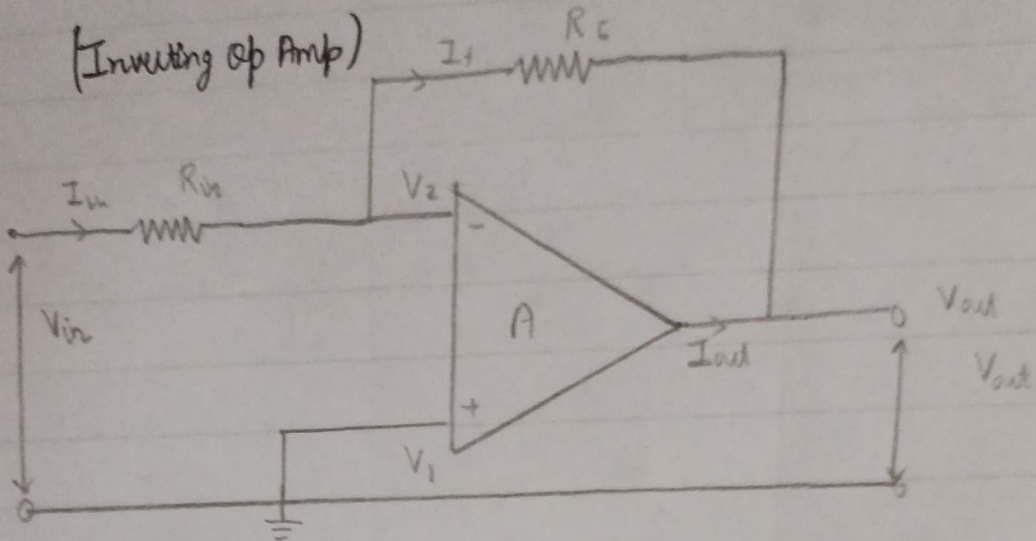 (Inverting Op Amp)
If
Rf
Iin
Rin
V2
-
Vin
A
Iout
Vout
Vout
+
V1